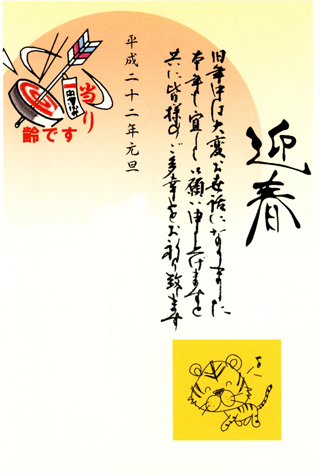 迎春
旧年中は大変お世話になりました
本年も宜しくお願い申し上げますと
共に皆様のご多幸をお祈り致します
平成二十二年元旦
当り
齢です